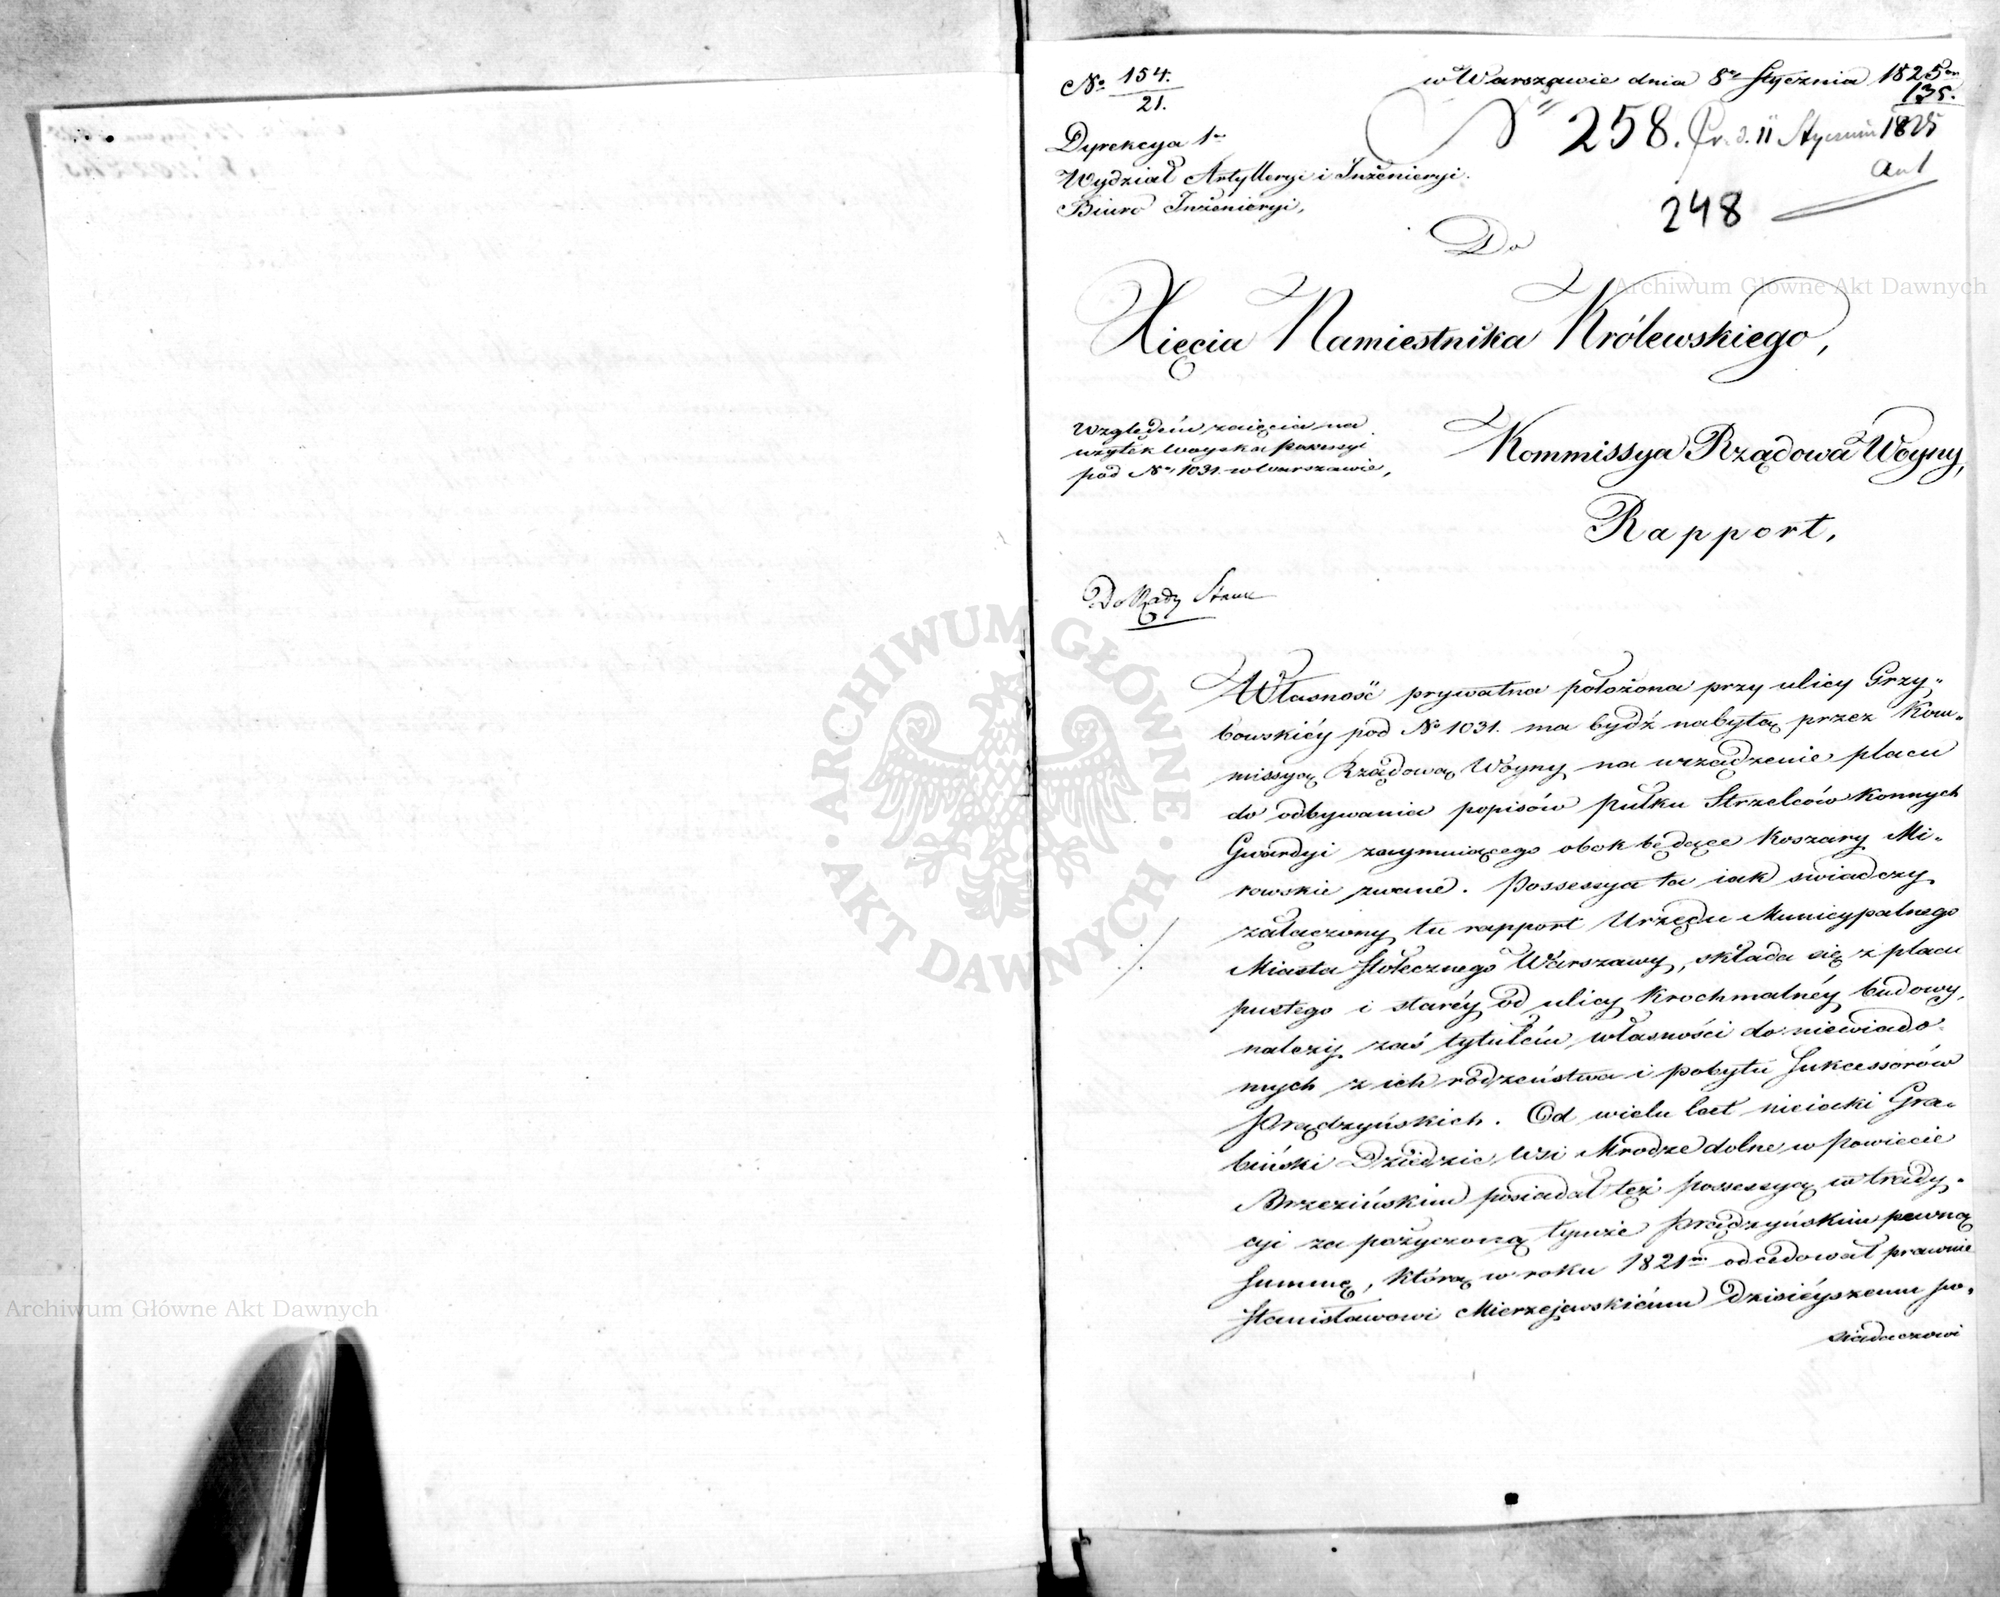 No 154.
21.
w Warszawie dnia 8go Stycznia 1825
135.
No 258. Pr. d. 11 Stycznia 1825
Dyrekcya 1a
Wydział Artylleryi i Inżenieryi.
Biuro Inżenieryi,
248
Do
Xięcia Namiestnika Królewskiego,
Względem zaięcia na
użytek woyska possesyi
pod No 1031. w Warszawie,
Kommissya Rządowa Woyny,
Rapport,
Do Rady Stanu
Własność prywatna położona przy ulicy Grzy-
bowskiéy pod No 1031. ma bydź nabytą przez Kom-
missyą Rządową Woyny na urządzenie placu
do odbywania popisów Pułku Strzelców Konnych
Gwardyi zaymuiącego obok będące Koszary Mi-
rowskie zwane. Possessya ta iak świadczy
załączony tu rapport Urzędu Municypalnego
Miasta Stołecznego Warszawy, składa się z placu
pustego i staréy od ulicy Krochmalnéy budowy,
należy zaś tytułem własności do niewiado-
mych z ich rodzeństwa i pobytu Sukcessorów
Prądzyńskich. Od wielu lat nieiaki Gra-
biński Dziedzic Wsi Mrodze dolne w Powiecie
Brzezińskim posiadał też possessyą w trady-
cyi za pożyczoną tymże Prądzyńskim pewną
Summę, którą w roku 1821m odcedował prawnie
Stanisławowi Mierzejewskiému Dzisiéyszemu po-
siadaczowi
ARCHIWUM GŁÓWNE AKT DAWNYCH
Archiwum Główne Akt Dawnych
Archiwum Główne Akt Dawnych